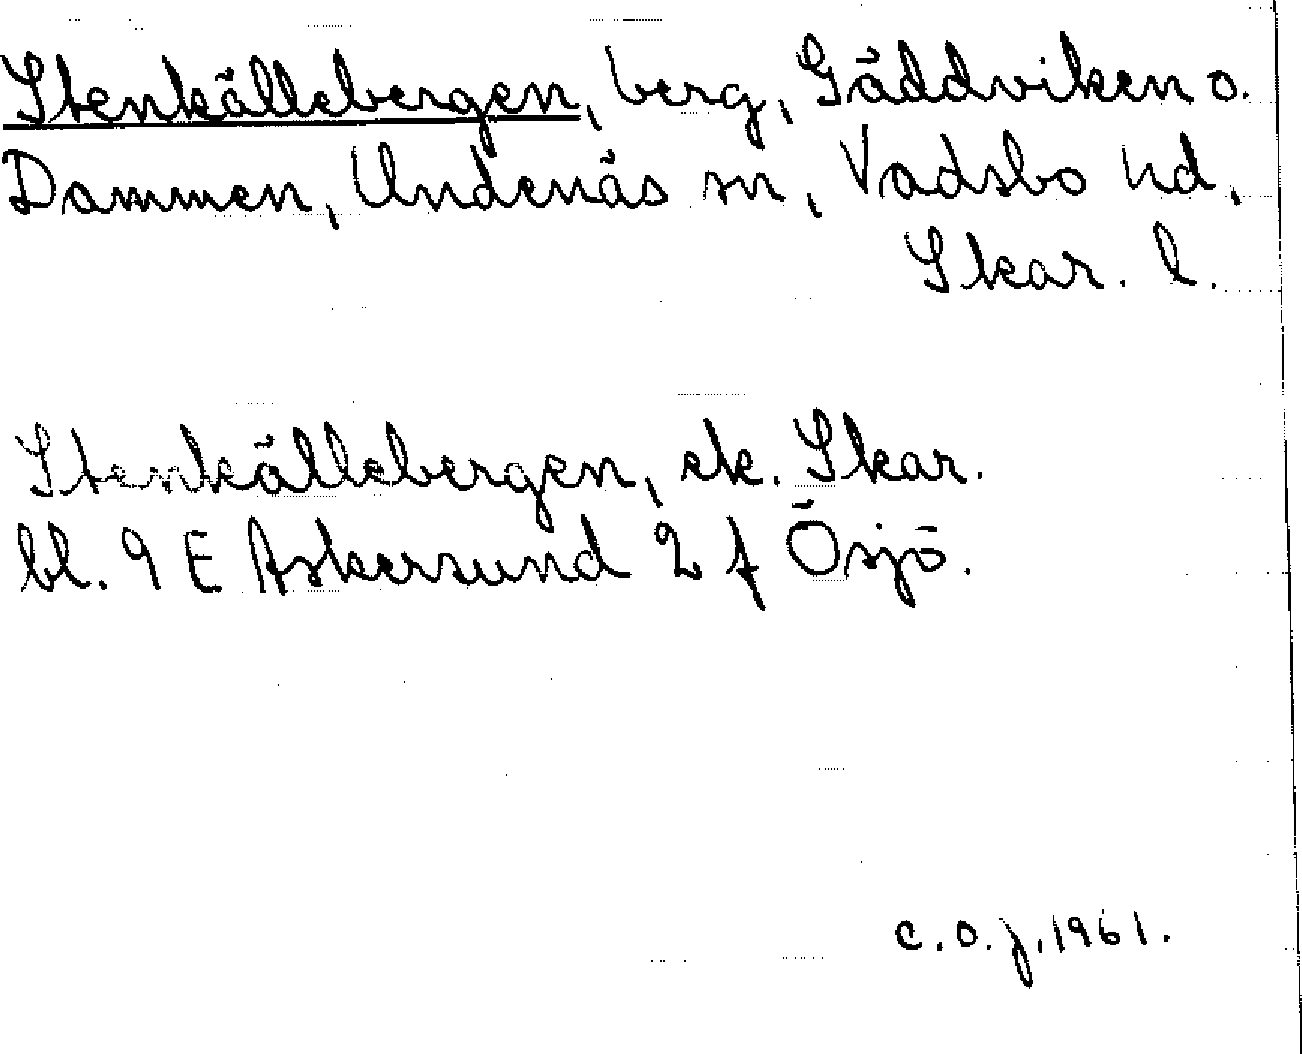 Stenkällebergen, berg, Gäddviken o.
Dammen, Undenäs sn, Vadsbo hd,
Skar. l.
Stenkällebergen, ek. Skar.
bl. 9 E Askersund 2 f Ösjö.
C.O.J. 1961.